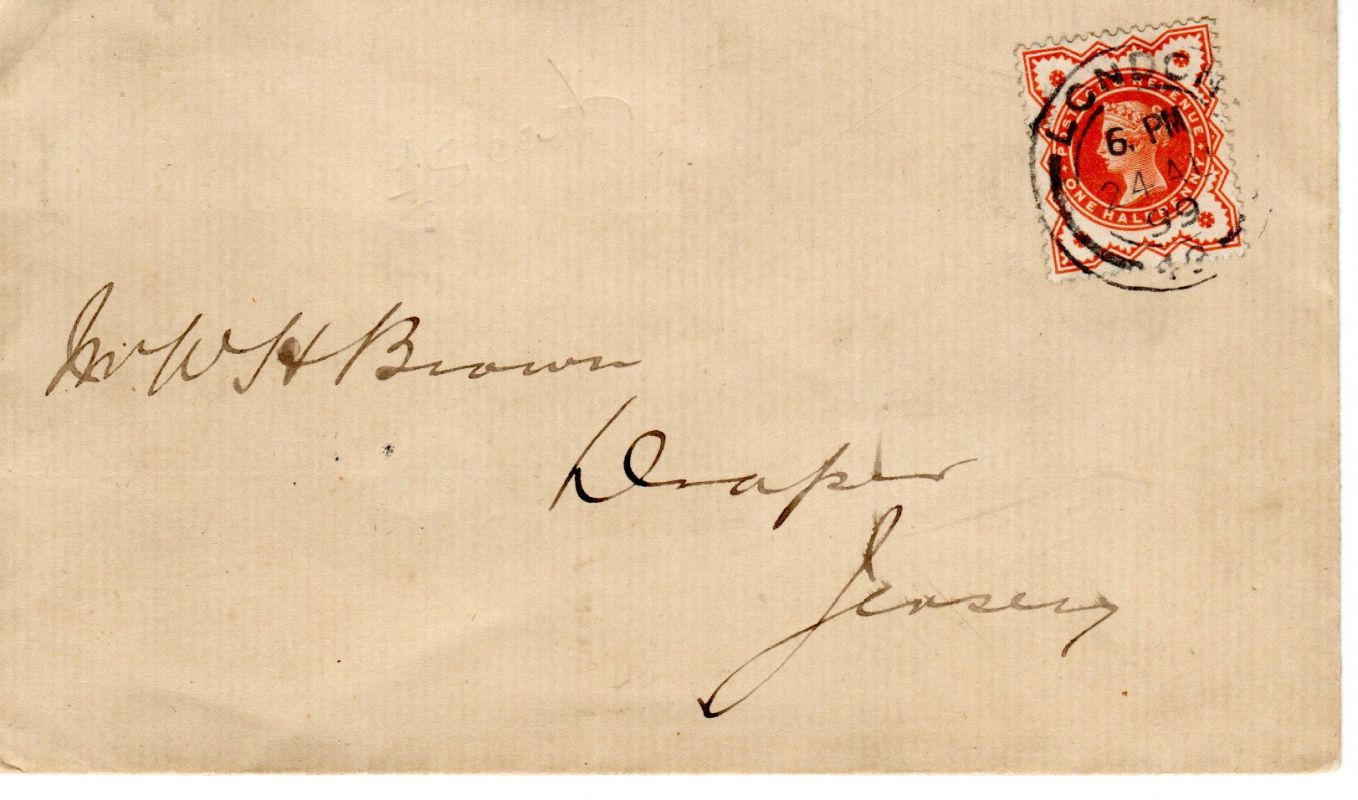 LONDON
6. PM
24 AU
99
49
POSTAGE & REVENUE
ONE HALFPENNY
Mr W H Brown
Draper
Jersey